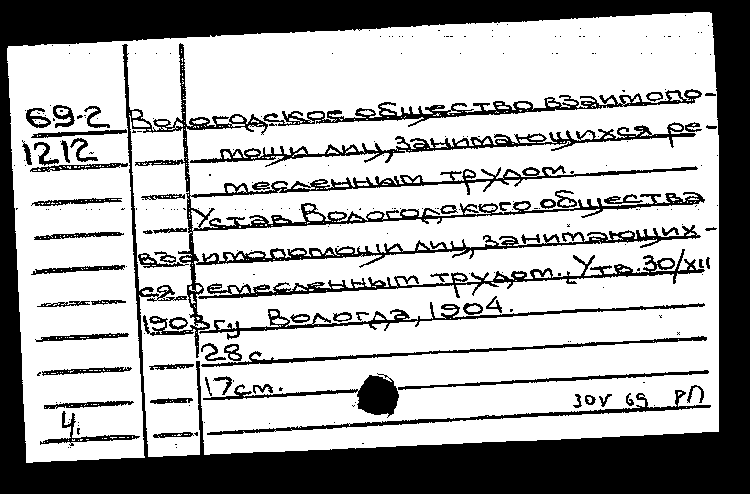 69-2 Вологодское общество взаимопо-
1212 мощи лиц, занимающихся ре-
месленным трудом.
Устав Вологодского общества
взаимопомощи лиц, занимающих-
ся ремесленным трудом. Утв. 30/XII
1903 г. Вологда, 1904.
28 с.
17 см.
30 V 69 РП
4.